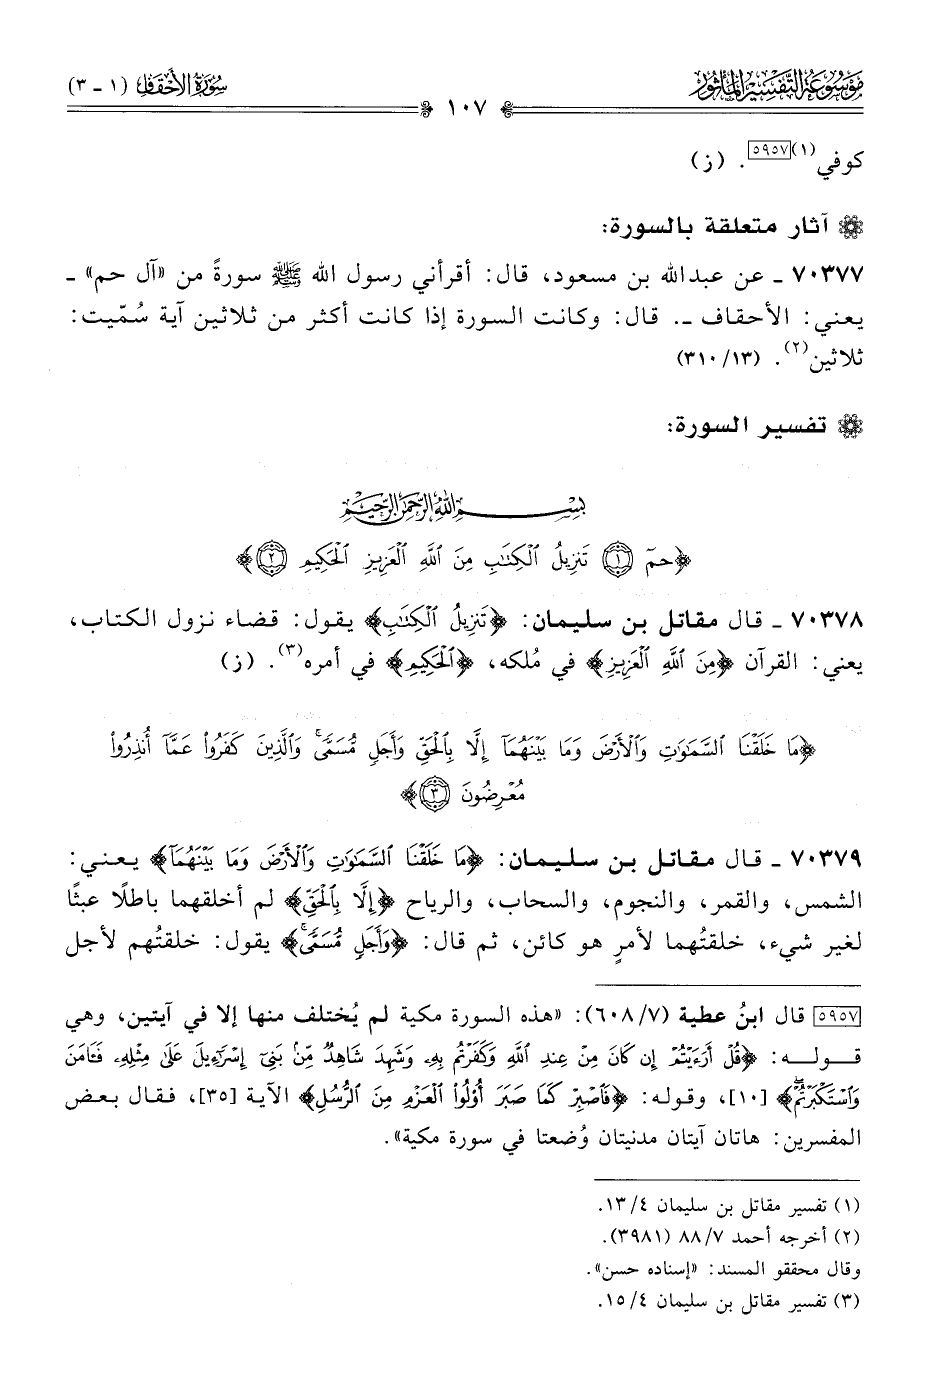 موسوعة التفسير المأثور
سورة الأحقاف (١ - ٣)
١٠٧
كوفي(١)[٥٩٥٧]. (ز)
آثار متعلقة بالسورة:
٧٠٣٧٧ ـ عن عبدالله بن مسعود، قال: أقرأني رسول الله ﷺ سورةً من «آل حم» ـ
يعني: الأحقاف ـ. قال: وكانت السورة إذا كانت أكثر من ثلاثين آية سُمّيت:
ثلاثين(٢). (٣١٠/١٣)
تفسير السورة:
بِسْمِ اللَّهِ الرَّحْمَٰنِ الرَّحِيمِ
﴿حمٓ ۝١ تَنزِيلُ ٱلْكِتَٰبِ مِنَ ٱللَّهِ ٱلْعَزِيزِ ٱلْحَكِيمِ ۝٢﴾
٧٠٣٧٨ ـ قال مقاتل بن سليمان: ﴿تَنزِيلُ ٱلْكِتَٰبِ﴾ يقول: قضاء نزول الكتاب،
يعني: القرآن ﴿مِنَ ٱللَّهِ ٱلْعَزِيزِ﴾ في مُلكه، ﴿ٱلْحَكِيمِ﴾ في أمره(٣). (ز)
﴿مَا خَلَقْنَا ٱلسَّمَٰوَٰتِ وَٱلْأَرْضَ وَمَا بَيْنَهُمَآ إِلَّا بِٱلْحَقِّ وَأَجَلٍ مُّسَمًّى ۚ وَٱلَّذِينَ كَفَرُوا۟ عَمَّآ أُنذِرُوا۟
مُعْرِضُونَ ۝٣﴾
٧٠٣٧٩ ـ قال مقاتل بن سليمان: ﴿مَا خَلَقْنَا ٱلسَّمَٰوَٰتِ وَٱلْأَرْضَ وَمَا بَيْنَهُمَآ﴾ يعني:
الشمس، والقمر، والنجوم، والسحاب، والرياح ﴿إِلَّا بِٱلْحَقِّ﴾ لم أخلقهما باطلًا عبثًا
لغير شيء، خلقتُهما لأمرٍ هو كائن، ثم قال: ﴿وَأَجَلٍ مُّسَمًّى ۚ﴾ يقول: خلقتُهم لأجل
[٥٩٥٧] قال ابنُ عطية (٦٠٨/٧): «هذه السورة مكية لم يُختلف منها إلا في آيتين، وهي
قوله: ﴿قُلْ أَرَءَيْتُمْ إِن كَانَ مِنْ عِندِ ٱللَّهِ وَكَفَرْتُم بِهِۦ وَشَهِدَ شَاهِدٌ مِّنۢ بَنِىٓ إِسْرَٰٓءِيلَ عَلَىٰ مِثْلِهِۦ فَـَٔامَنَ
وَٱسْتَكْبَرْتُمْ ۖ﴾ [١٠]، وقوله: ﴿فَٱصْبِرْ كَمَا صَبَرَ أُو۟لُوا۟ ٱلْعَزْمِ مِنَ ٱلرُّسُلِ﴾ الآية [٣٥]، فقال بعض
المفسرين: هاتان آيتان مدنيتان وُضعتا في سورة مكية».
(١) تفسير مقاتل بن سليمان ١٣/٤.
(٢) أخرجه أحمد ٨٨/٧ (٣٩٨١).
وقال محققو المسند: «إسناده حسن».
(٣) تفسير مقاتل بن سليمان ١٥/٤.